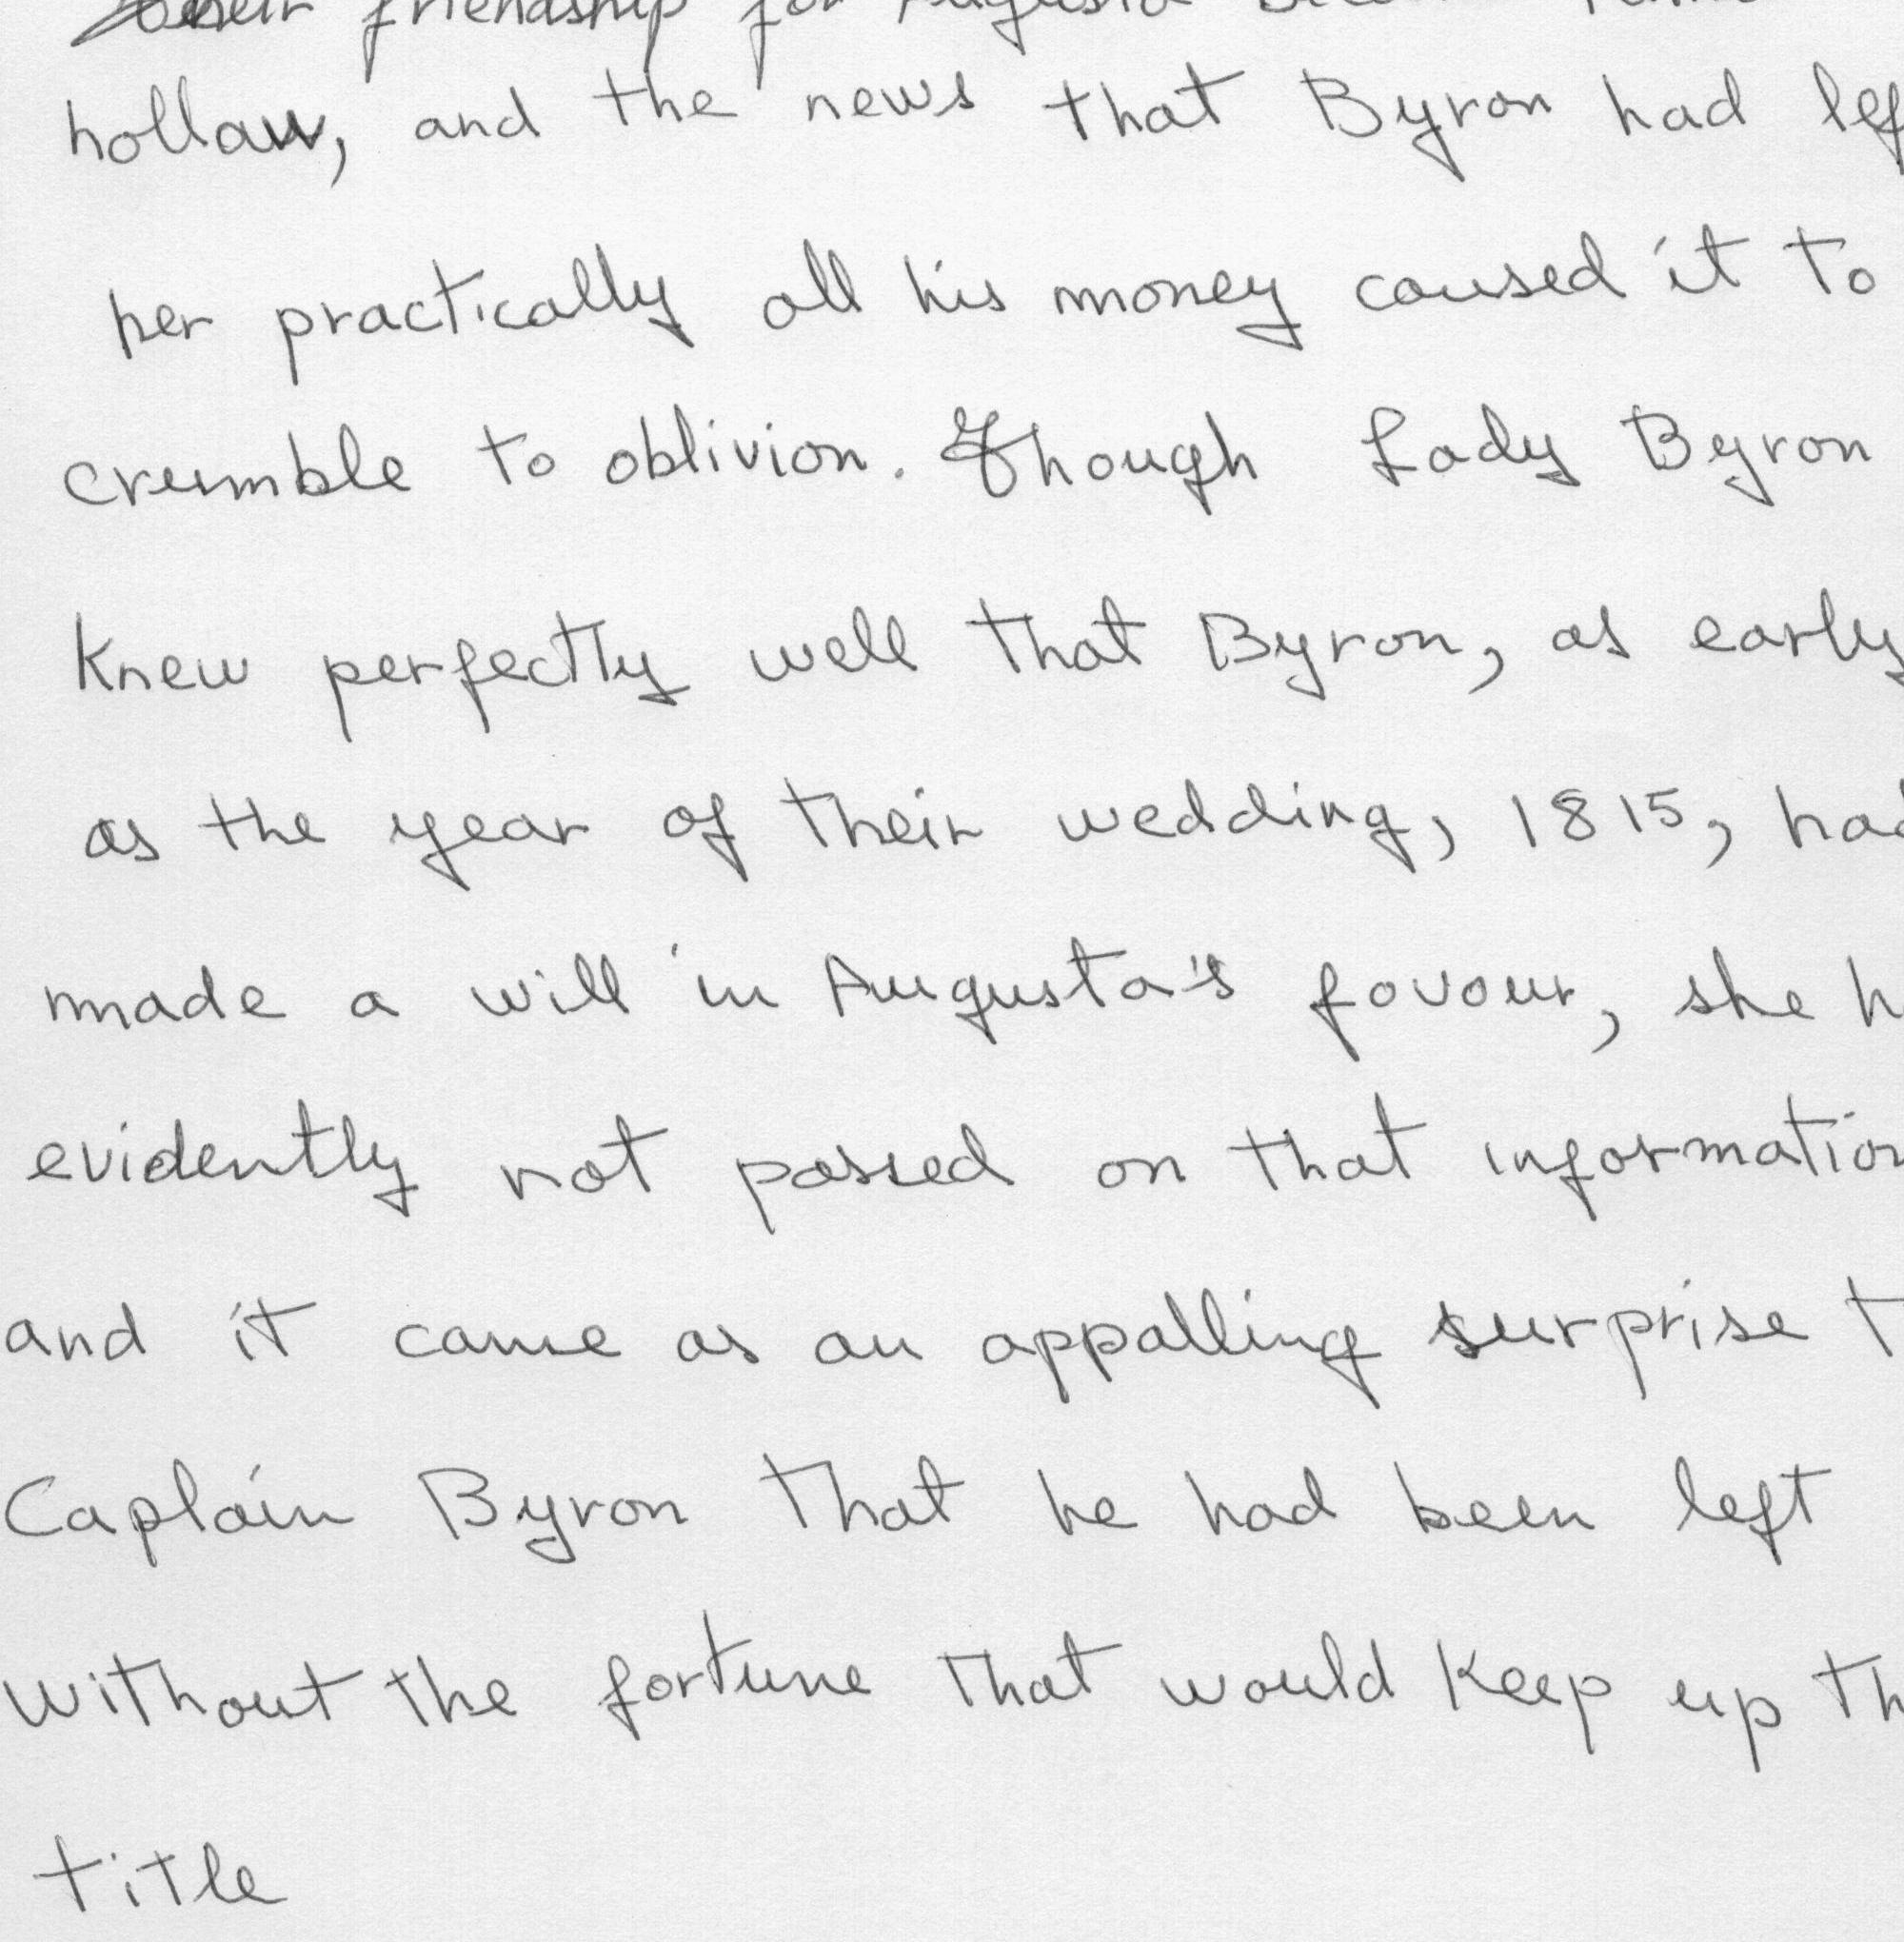 their friendship for Augusta
hollow, and the news that Byron had lef
her practically all his money caused it to
crumble to oblivion. Though Lady Byron
knew perfectly well that Byron, as early
as the year of their wedding, 1815, had
made a will in Augusta's favour, she h
evidently not passed on that information
and it came as an appalling surprise t
Captain Byron that he had been left
without the fortune that would keep up th
title